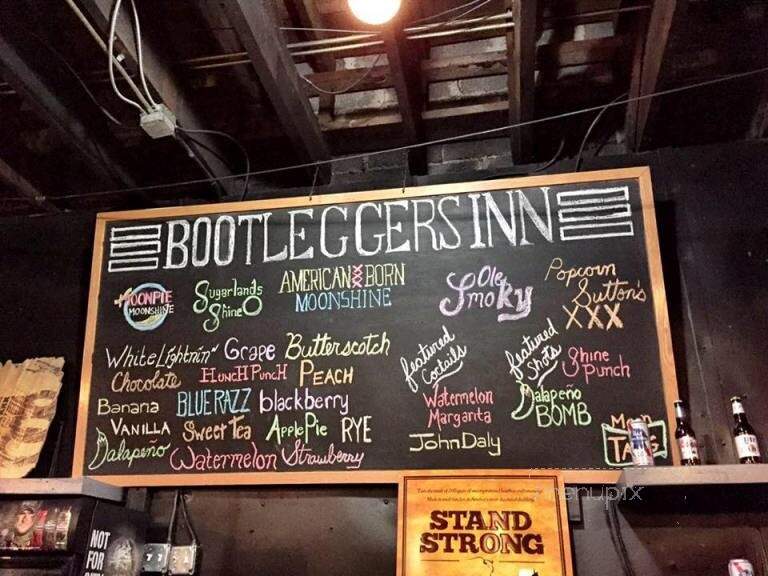 BOOTLEGGERS INN
MOONPIE
MOONSHINE
Sugarlands
Shine
AMERICAN BORN
MOONSHINE
Ole
Smoky
Popcorn
Sutton's
XXX
White Lightnin' Grape Butterscotch
Chocolate Hunch Punch PEACH
Banana BLUE RAZZ blackberry
VANILLA Sweet Tea Apple Pie RYE
Jalapeño Watermelon Strawberry
featured
Coctails
Watermelon
Margarita
John Daly
featured
Shots
Shine
Punch
Jalapeño
BOMB
TANG
STAND
STRONG
NOT
FOR
menupix